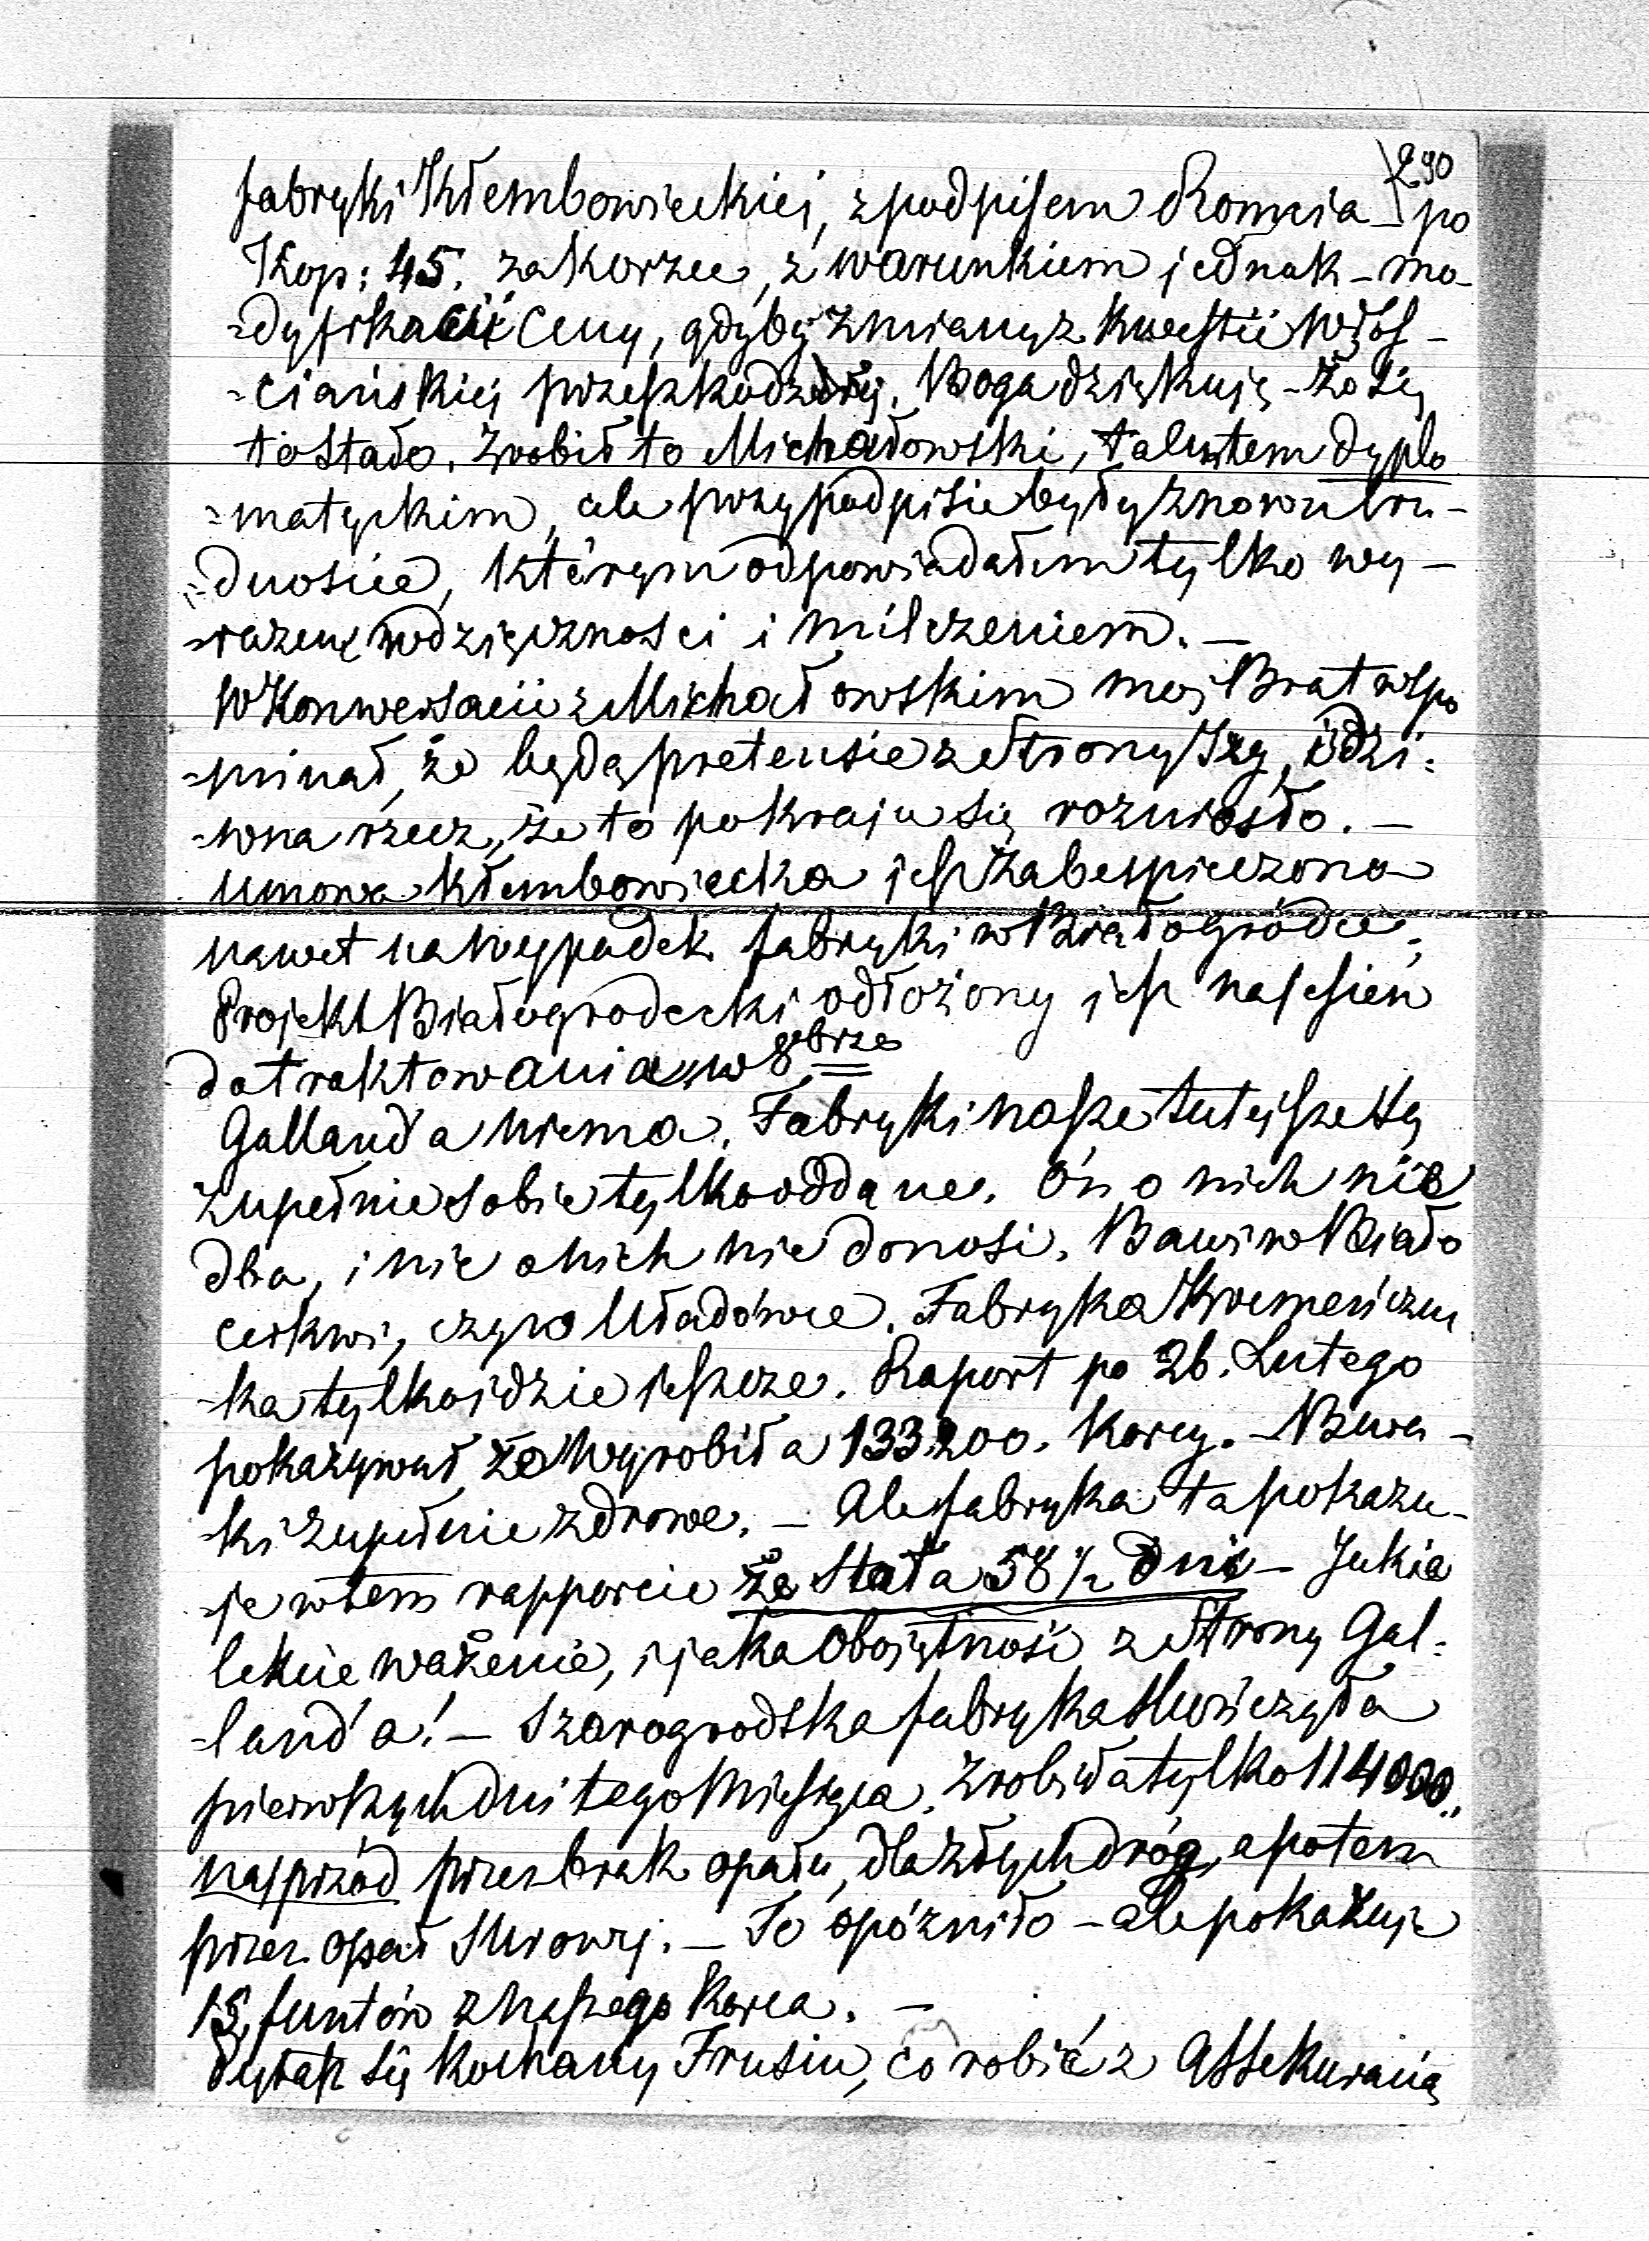 290
fabryki Kłembowieckiej, z podpisem Romcia – po
Kop: 45. za korzec, z warunkiem jednak – mo-
-dyfikacii ceny, gdyby zmiany z kwestii włoś-
-ciańskiej przeszkodziły. Boga dziękuję – że się
to stało. Zrobił to Michałowski, talentem dyplo
-matyckim, ale przy podpisie były znowu tru-
-dności, którym odpowiadałem tylko wy-
-rażeną wdzięczności i milczeniem. –
W Konwersacii z Michałowskim moj Brat wspo
-minał, że będą pretensie ze strony Izy, i dzi-
-wna rzecz, że to po kraju się rozniosło. –
Umowa Kłembowiecka jest zabespieczona
nawet na wypadek fabryki w Białogródce,
Projekt Białogrodecki odłożony jest na jesień
do traktowania, w 8brze
Galland'a niema. Fabryki nasze tutejsze są
zupełnie sobie tylko oddane. On o nich nie
dba, i nic o nich nie donosi. Bawi w Biało
cerkwi, czy w Uładówce. Fabryka Kremeńczu
-ka tylko idzie jeszcze. Raport po 26. Lutego
pokazywał że wyrobiła 133200. korcy. – Bura-
-ki zupełnie zdrowe. – Ale fabryka ta pokazu-
-je w tem rapporcie że stała 58½ dni – Jakie
lekce ważenie, i jaka obojętność ze strony Gal-
-land'a! – Szarogrodska fabryka skończyła
pierwszych dni tego Miesząca. Zrobiła tylko 114000.,
najprzód przez brak opału, dla złych dróg, a potem
przez opał surowy. – To opóźniło – ale pokazuje
funtów z naszego korca. –
Pytasz się kochany Frusiu, co robić z Assekuracią